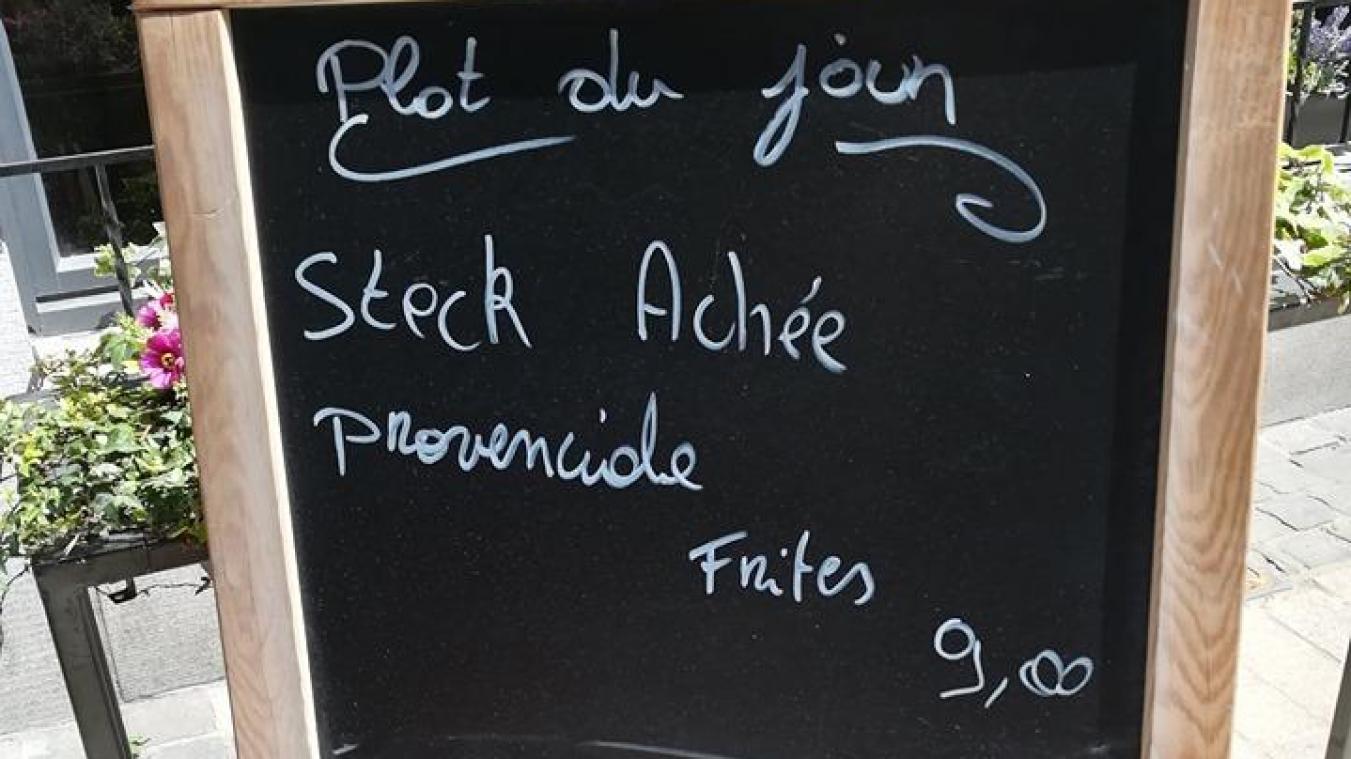 Plat du jour
Steck Achée
provenciale
Frites
9,00